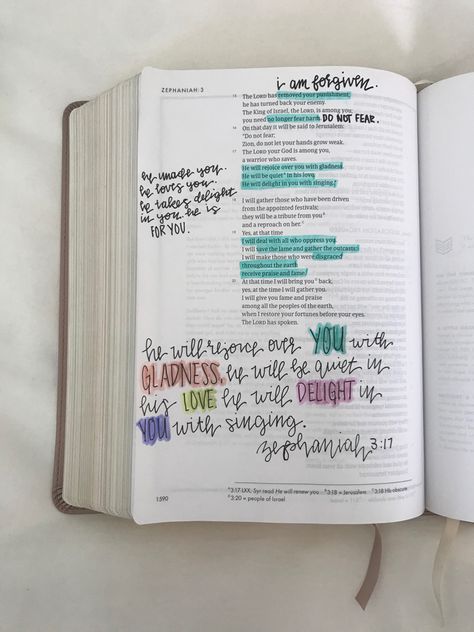 ZEPHANIAH 3
i am forgiven.
15 The LORD has removed your punishment;
he has turned back your enemy.
The King of Israel, the LORD, is among you;
you need no longer fear harm. DO NOT FEAR.
16 On that day it will be said to Jerusalem:
"Do not fear;
Zion, do not let your hands grow weak.
17 The LORD your God is among you,
a warrior who saves.
He will rejoice over you with gladness.
He will be quiet in his love.
He will delight in you with singing."
he made you.
he loves you.
he takes delight
in you. he is
FOR YOU.
18 I will gather those who have been driven
from the appointed festivals;
they will be a tribute from you
and a reproach on her.
19 Yes, at that time
I will deal with all who oppress you.
I will save the lame and gather the outcasts;
I will make those who were disgraced
throughout the earth
receive praise and fame.
20 At that time I will bring you back,
yes, at the time I will gather you.
I will give you fame and praise
among all the peoples of the earth,
when I restore your fortunes before your eyes.
The LORD has spoken.
he will rejoice over YOU with
GLADNESS. he will be quiet in
his LOVE. he will DELIGHT in
YOU with singing.
zephaniah 3:17
1590
3:17 LXX, Syr read He will renew you 3:18 = Jerusalem 3:18 Hb obscure
3:20 = people of Israel